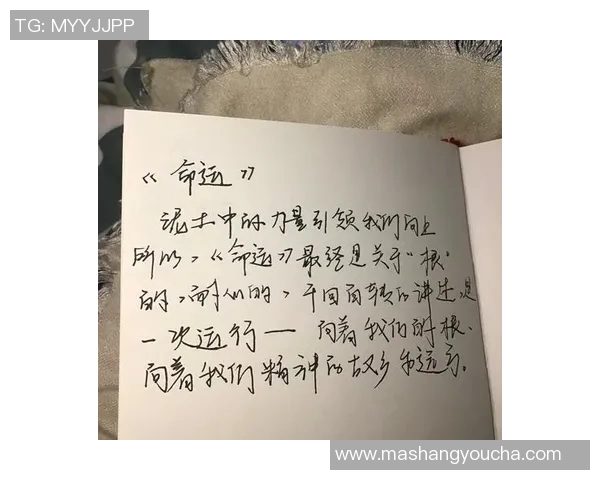 TG: MYYJJPP
《命运》
泥土中的力量引领我们向上
所以，《命运》最终是关于“根”
的，耐人的，千回百转的讲述，是
一次远行 — 向着我们的根、
向着我们精神的故乡的远行。
www.mashangyoucha.com